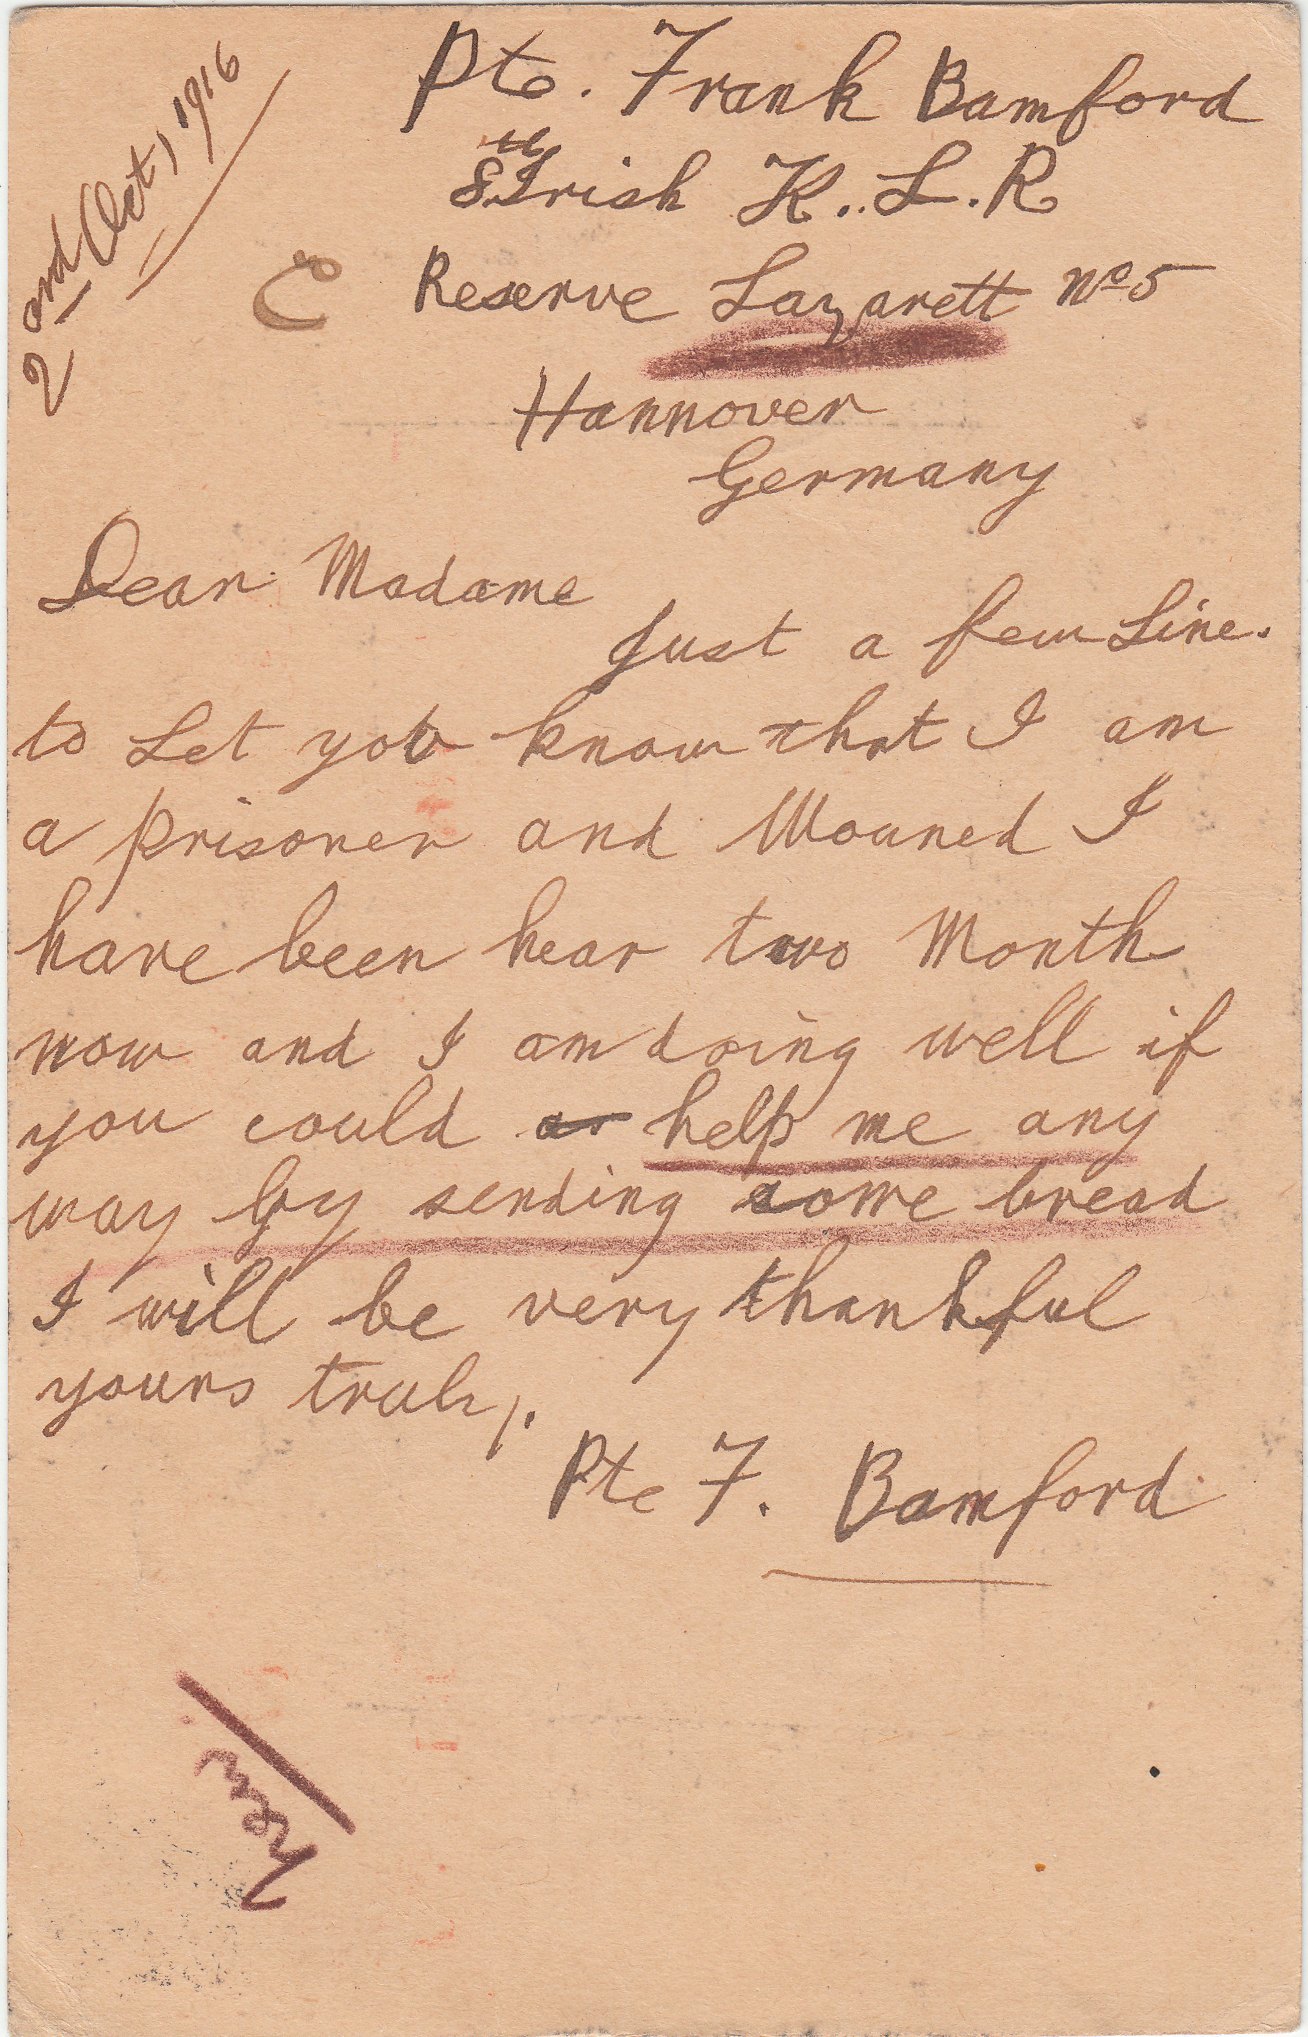 2nd Oct, 1916
Pte. Frank Bamford
8th Irish K.L.R
Reserve Lazarett No 5
Hannover
Germany
Dear Madame
Just a few Line.
to Let you know that I am
a prisoner and Wouned I
have been hear two Month
now and I am doing well if
you could help me any
way by sending some bread
I will be very thankful
yours truly.
Pte F. Bamford
New